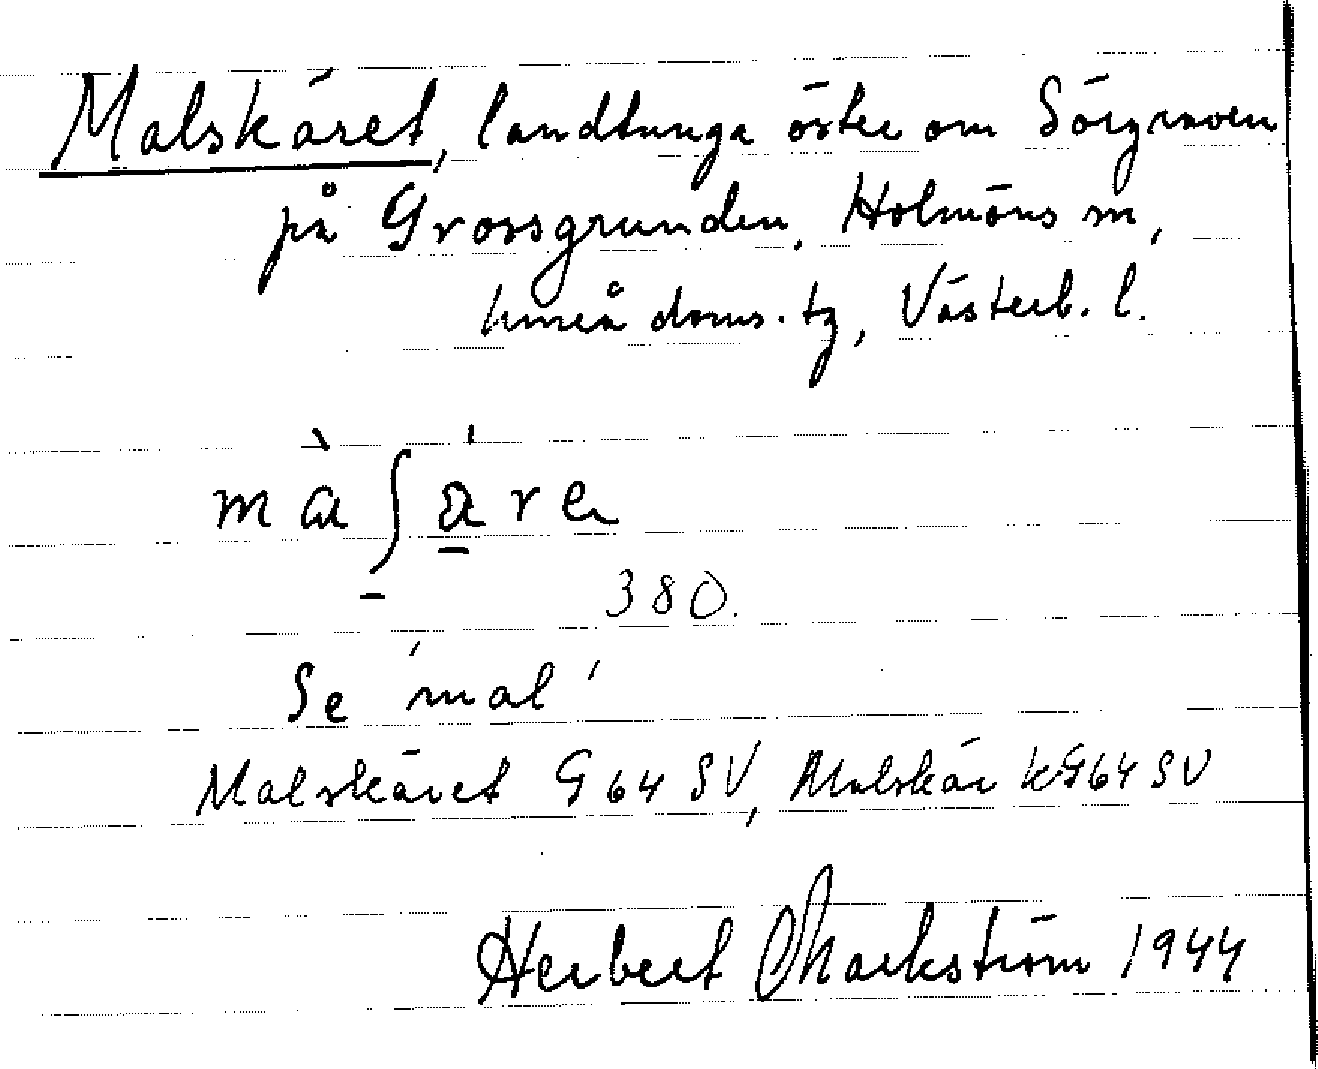 Malskäret, landtunga öster om Sörgraven
på Grossgrunden, Holmöns sn,
Umeå doms. tg, Västerb. l.
380.
Se 'mal'
Malskäret G 64 SV, Malskär kG64 SV
Herbert Markström 1944